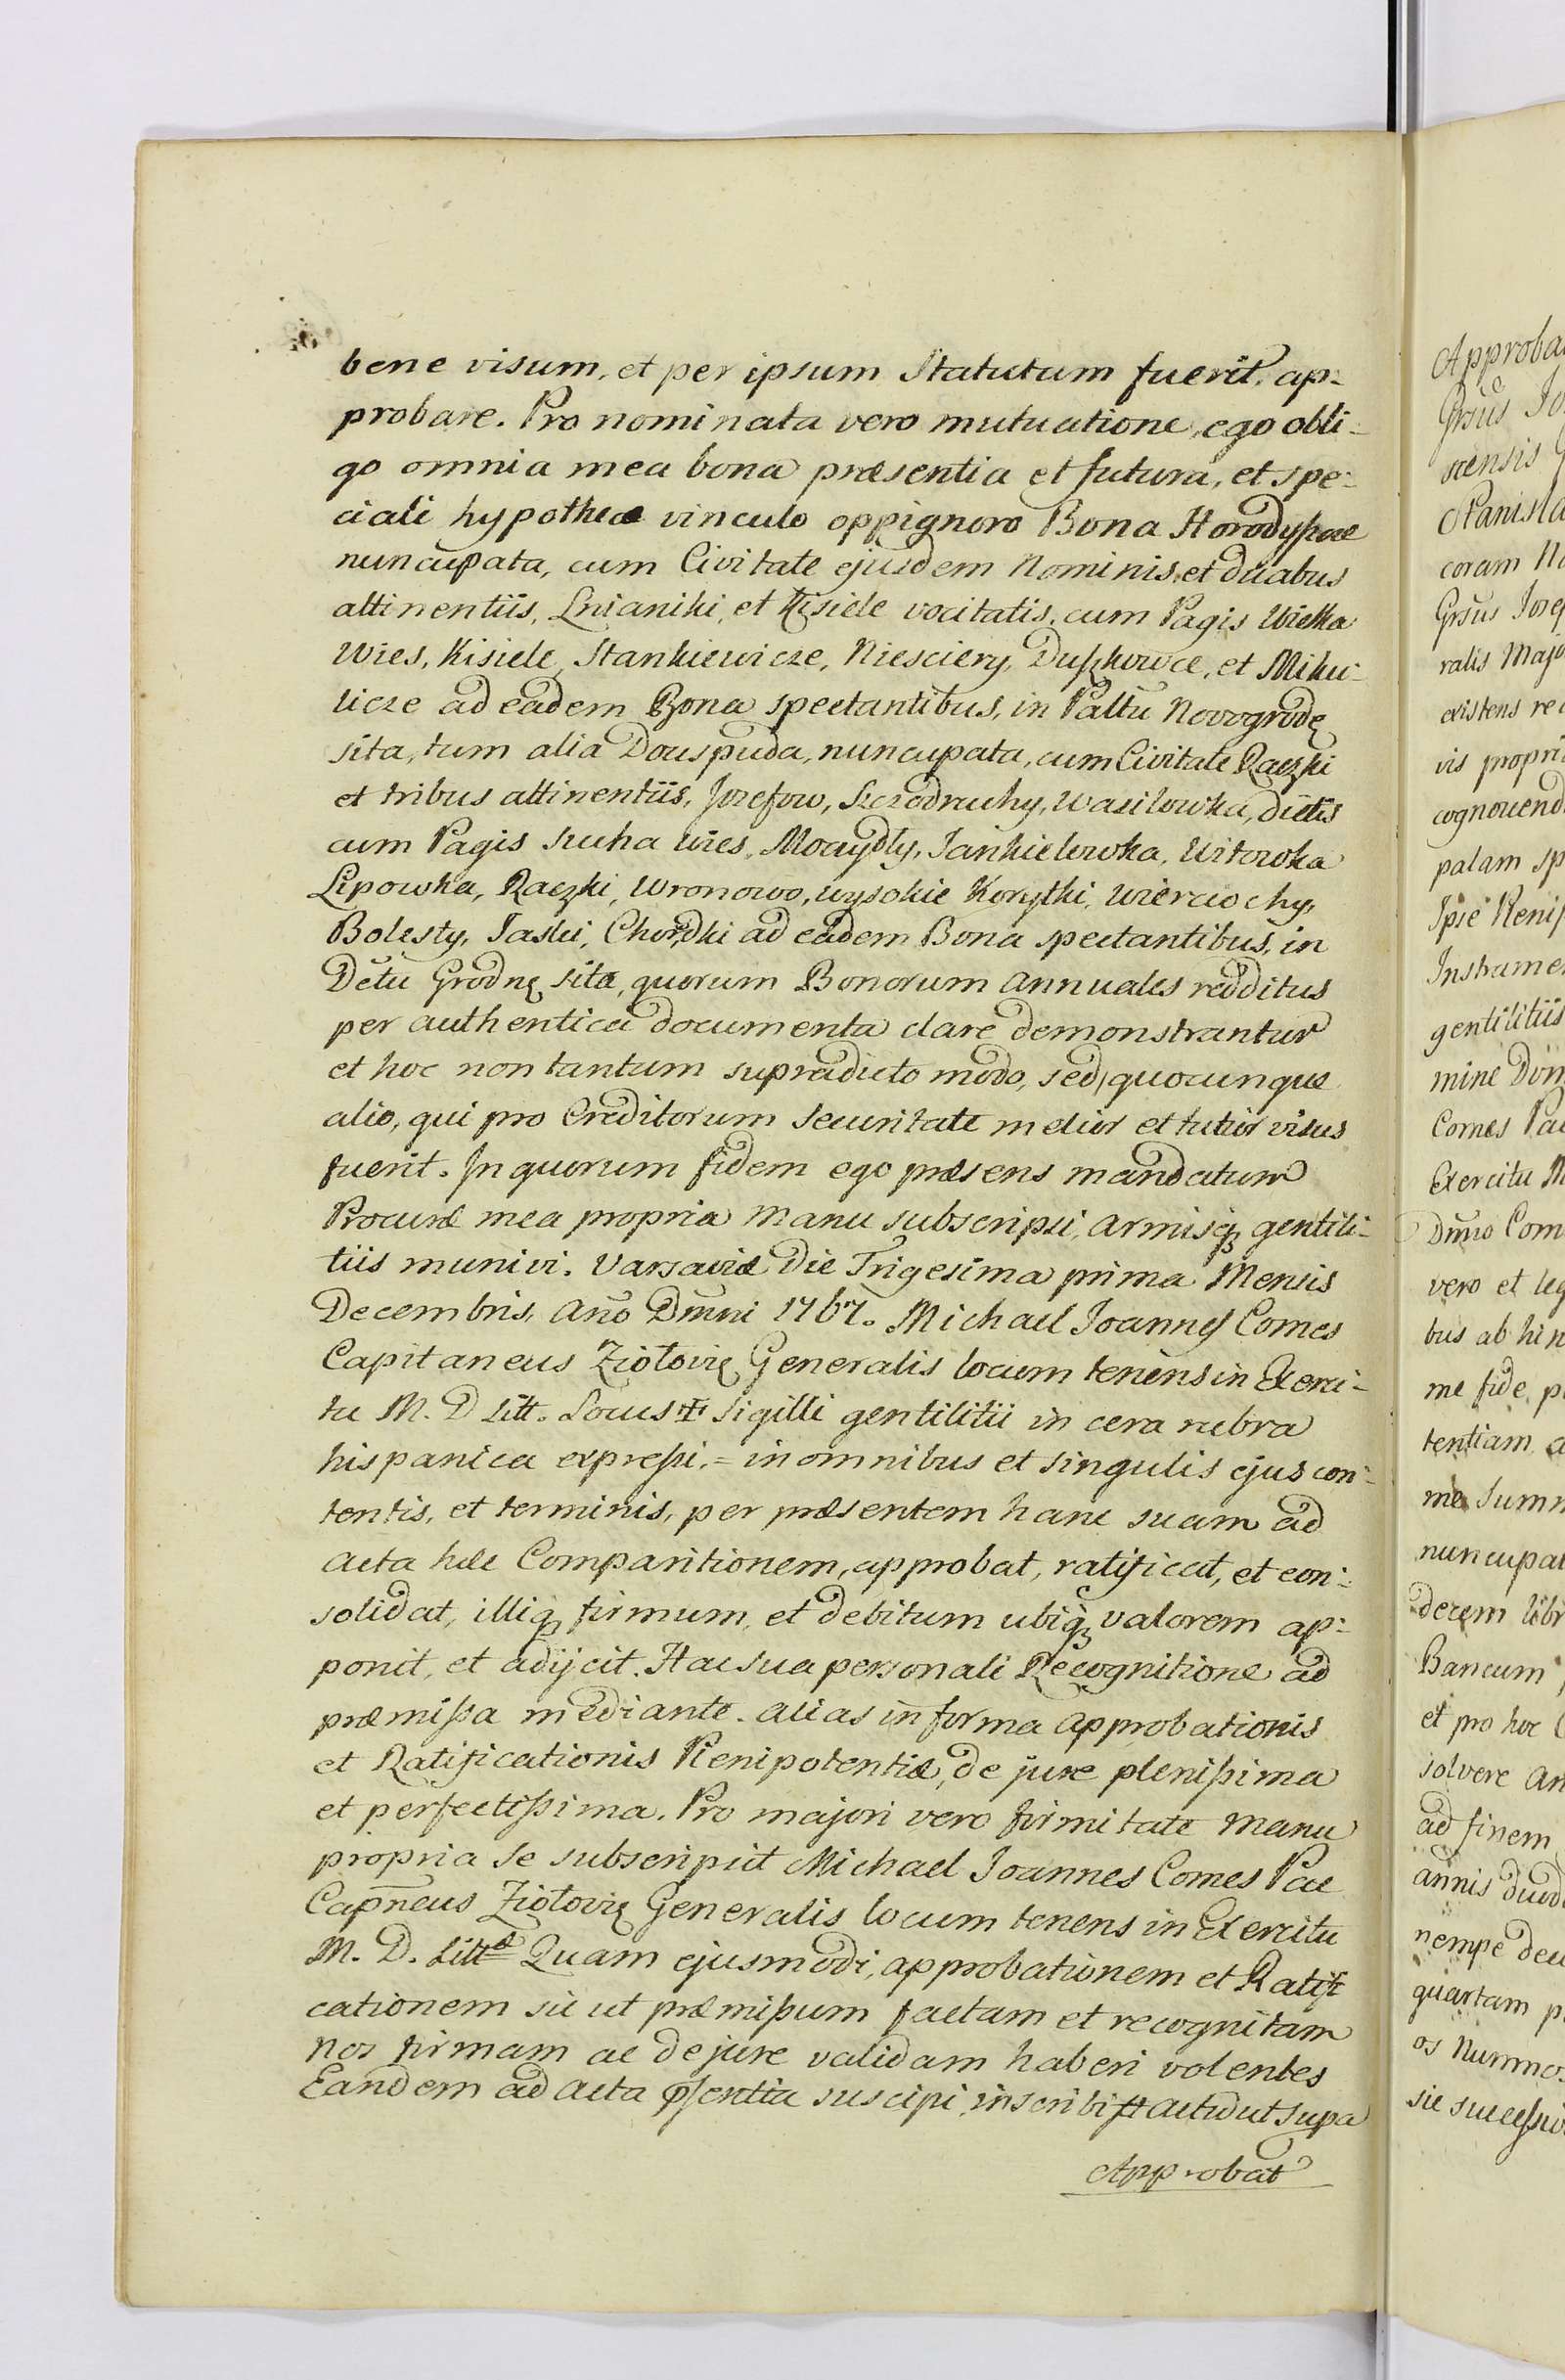 bene visum, et per ipsum Statutum fuerit, ap-
probare. Pro nominata vero mutuatione, ego obli-
go omnia mea bona præsentia et futura, et spe-
ciali hypothecæ vinculo oppignoro Bona Horodyszcze
nuncupata, cum Civitate ejusdem Nominis, et duabus
attinentiis, Lnianiki, et Kisiele vocitatis, cum Pagis Wielka
Wies, Kisiele, Stankiewicze, Niesciery, Duszkowce, et Miku-
licze ad eadem Bona spectantibus, in Pallū Novogrodę
sita, tum alia Douspuda, nuncupata, cum Civitate Raczki
et tribus attinentiis, Jozefow, Szczodruchy, Wasilowka, dictis
cum Pagis Sucha Wies, Moczydly, Jankielowka, Witowka
Lipowka, Raczki, Wronowo, Wysokie Korytki, Wierciochy,
Bolesty, Jaski, Chorodki ad eadem Bona spectantibus, in
Dctu Grodnę sita, quorum Bonorum annuales redditus
per authentica documenta clare demonstrantur
et hoc non tantum supradicto modo, sed, quocunque
alio, qui pro Creditorum securitate melior et tutior visus
fuerit. In quorum fidem ego præsens mandatum
Procuræ mea propria manu subscripsi, armisq3 gentili-
tiis munivi. Varsaviæ Die Trigesima prima Mensis
Decembris, Año Dmni 1767. Michael Joannes Comes
Capitaneus Ziołovię Generalis locum tenens in Exerci-
tu M. D Litt. Locus ✝ Sigilli gentilitii in cera rubra
hispanica expressi, = in omnibus et singulis ejus con-
tentis, et terminis, per præsentem hanc suam ad
acta hæc Comparitionem, approbat, ratificat, et con-
solidat, illiq3 firmum, et debitum ubiq3 valorem ap-
ponit, et adijcit. Hac sua personali Recognitione ad
præmissa mediante. alias in forma approbationis
et Ratificationis Plenipotentiæ, de jure plenissima
et perfectissima. Pro majori vero firmitate manu
propria se subscripsit Michael Joannes Comes Pac
Capñeus Ziołovię Generalis locum tenens in Exercitu
M. D. Littæ Quam ejusmodi, approbationem et Ratifi
cationem sic ut præmissum factam et recognitam
nos firmam ac de jure validam haberi volentes
Eandem ad acta pssentia suscipi, inscribi
Approbat
Approba
Grsus Jo
scensis
Stanisla
coram No
Grsus Jose
ralis Majo
existens re
vis propri
cognovend
palam sp
Ipse Plenip
Instrume
gentilitiis
mine Dom
Comes Pac
Exercitu M
Dmno Com
vero et leg
bus ab hin
me fide p
tentiam a
me Summ
nuncupat
decem libr
Bancum
et pro hoc
solvere an
ad finem
annis duod
nempe dec
quartam p
os Nummo
sic successiv